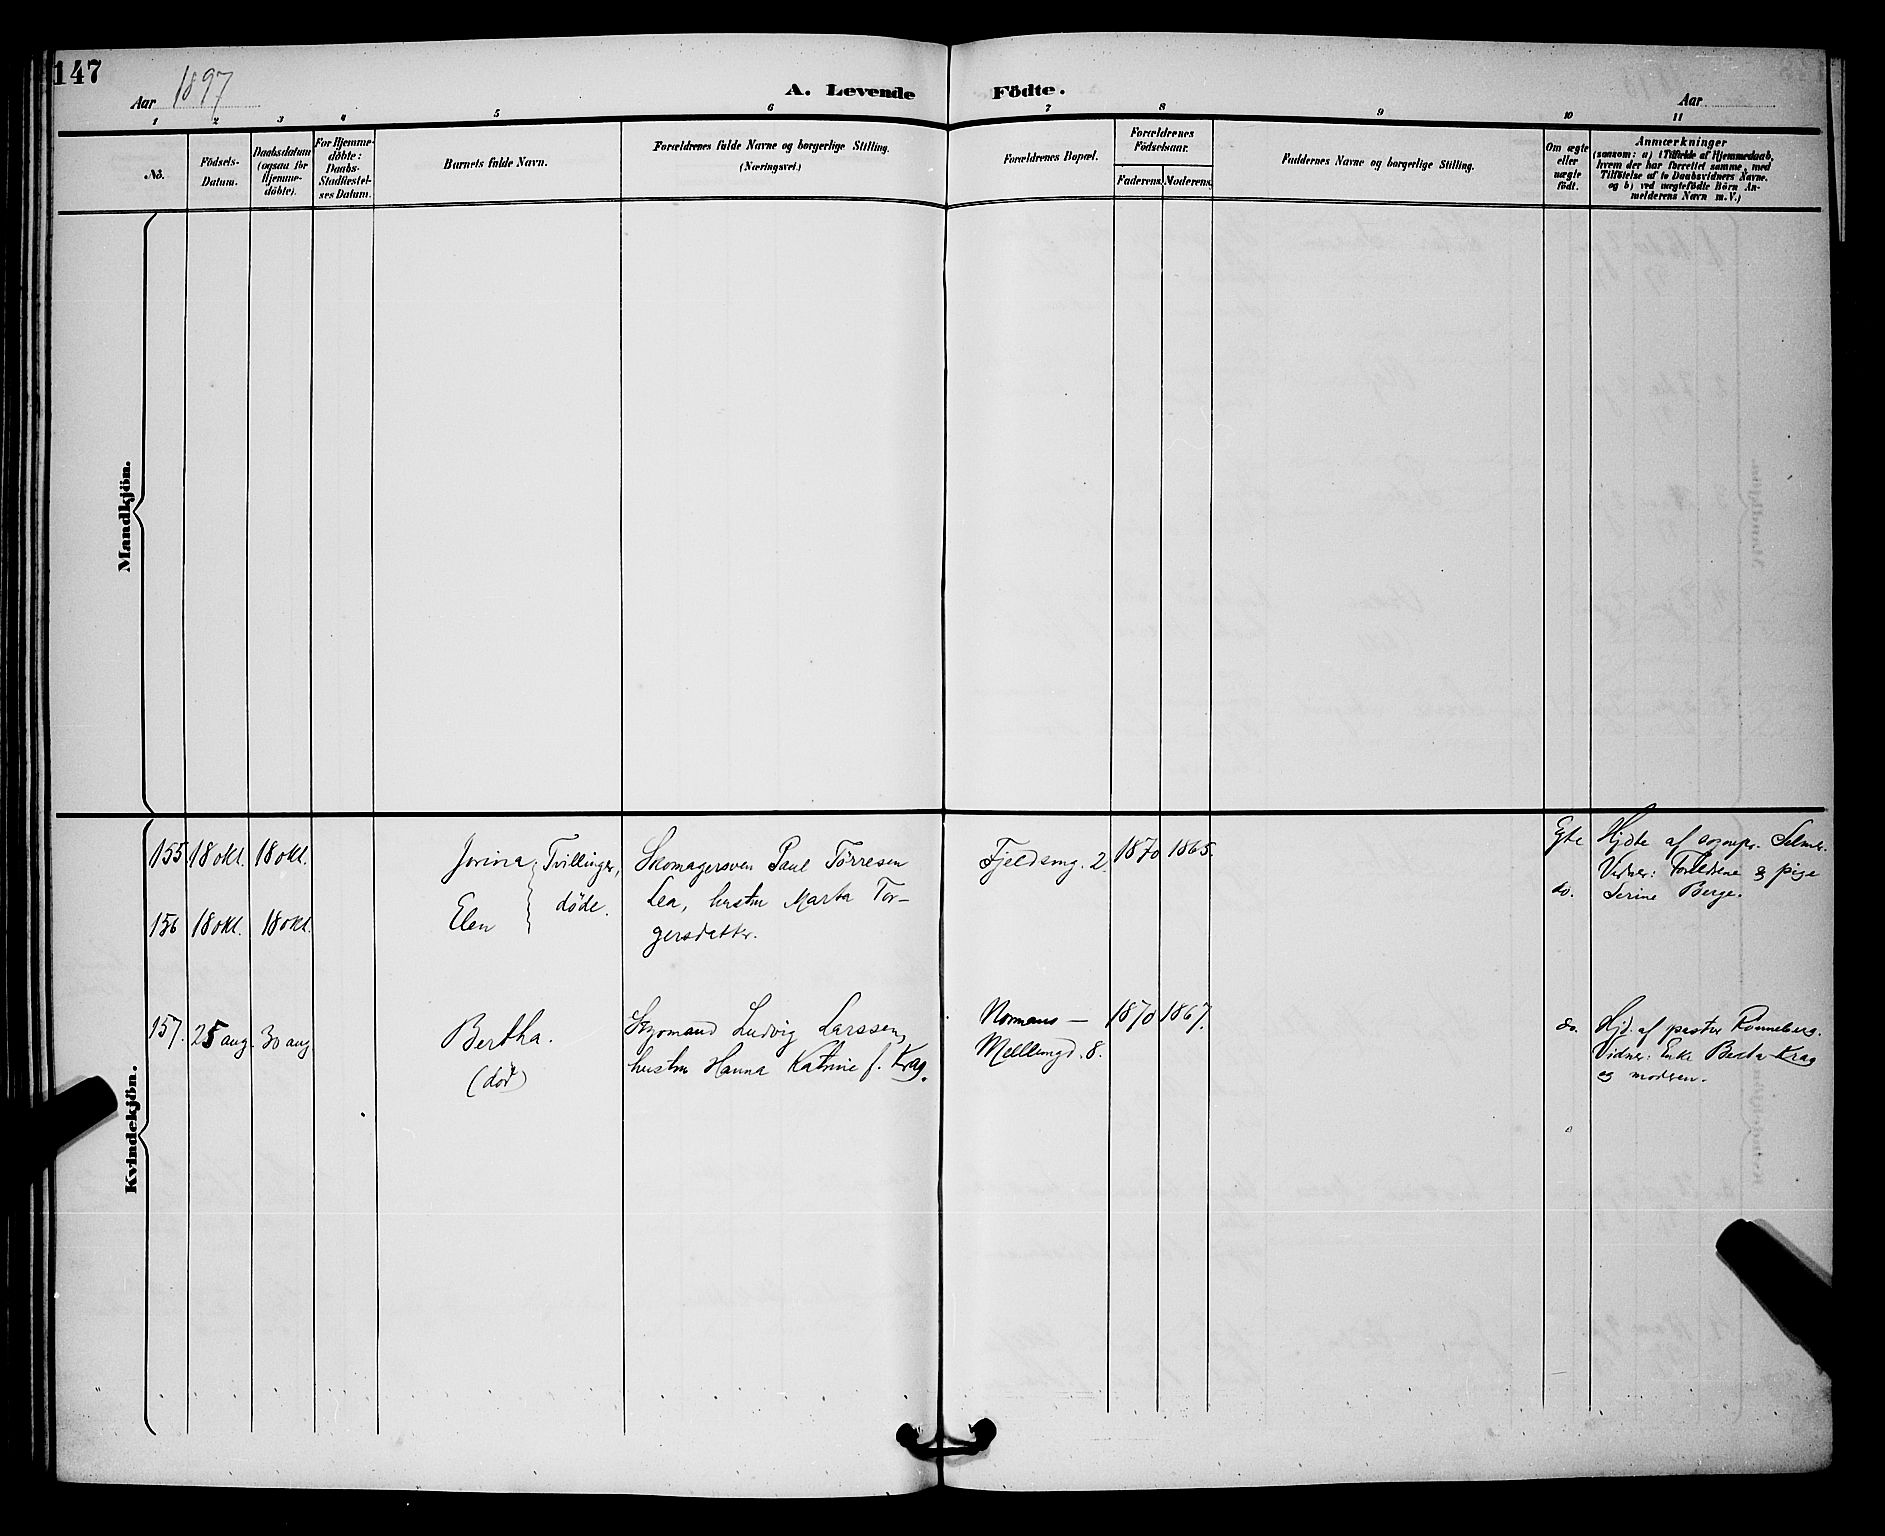 147
Aar 1897
A. Levende Födte.
Aar
1 2 3 4 5 6 7 8 9 10 11
No.
Födsels-
Datum.
Daabsdatum
(ogsaa for
Hjemme-
döbte).
For Hjemme-
döbte:
Daabs-
Stadfæstel-
ses Datum.
Barnets fulde Navn.
Forældrenes fulde Navne og borgerlige Stilling.
(Næringsvei.)
Forældrenes Bopæl.
Forældrenes
Födselsaar.
Faderens. Moderens.
Faddernes Navne og borgerlige Stilling.
Om ægte
eller
uægte
födt.
Anmærkninger
(saasom: a) i Tilfælde af Hjemmedaab,
hvem der har forrettet samme, med
Tilföielse af to Daabsvidners Navne.
og b) ved uægtefödte Börn An-
melderens Navn m. V.)
Mandkjön.
Kvindekjön.
155 18 okt. 18 okt. Jorina Tvillinger,
156 18 okt. 18 okt. Elen døde.
Skomagersven Paul Tørresen
Lea, hustru Marta Tor-
gersdatter.
Fjeldsmg. 2. 1870 1865.
Egte
do.
Hjdte af sognepr. Selmer.
Vidner: Forældrene & pige
Serine Berge.
157. 25 aug. 30 aug. Bertha.
(død)
Ludvig Larssen,
hustru Hanna Katrine f. Krag.
Normans-
Mellemgd. 8.
1870 1867.
do.
Hjd. af pastor Rønneberg.
Vidner: Enke Berta Krag
og modren.